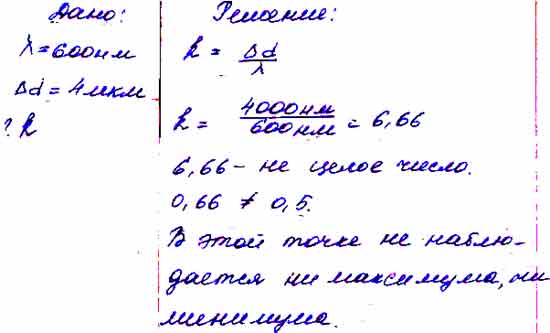 Дано: Решение:
λ = 600 нм k = Δd / λ
Δd = 4 мкм
? k k = 4000 нм / 600 нм = 6,66
6,66 – не целое число.
0,66 ≠ 0,5.
В этой точке не наблю-
дается ни максимума, ни
минимума.